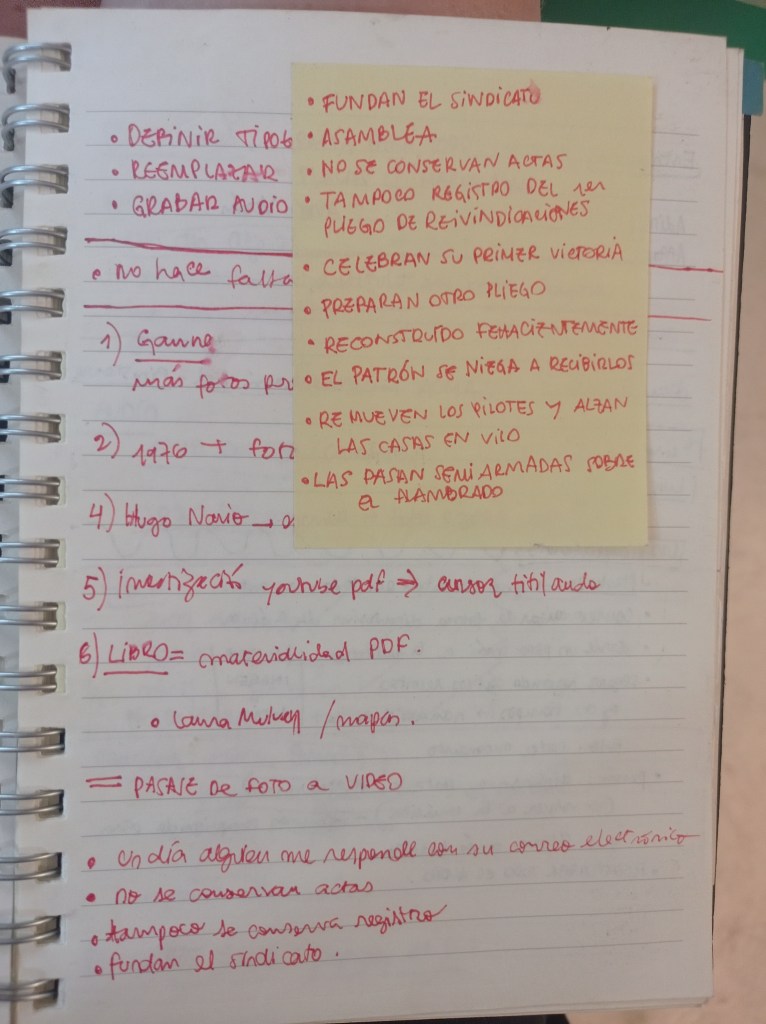 • DEFINIR TIPOS
• REEMPLAZAR
• GRABAR AUDIO
• no hace falta
1) Gaune
más fotos pr
2) 1976 + fot
4) Hugo Nario →
5) youtube pdf ⇒ cursor titilando
6) LIBRO = materialidad PDF.
• Laura Mulvey / mapas.
= PASAJE DE FOTO A VIDEO
• Un día alguien me responde con su correo electrónico
• no se conservan actas
• tampoco se conserva registro
• fundan el sindicato.
• FUNDAN EL SINDICATO
• ASAMBLEA
• NO SE CONSERVAN ACTAS
• TAMPOCO REGISTRO DEL 1er
PLIEGO DE REIVINDICACIONES
• CELEBRAN SU PRIMER VICTORIA
• PREPARAN OTRO PLIEGO
• RECONSTRUIDO FEHACIENTEMENTE
• EL PATRÓN SE NIEGA A RECIBIRLOS
• REMUEVEN LOS PILOTES Y ALZAN
LAS CASAS EN VILO
• LAS PASAN SEMIARMADAS SOBRE
EL ALAMBRADO